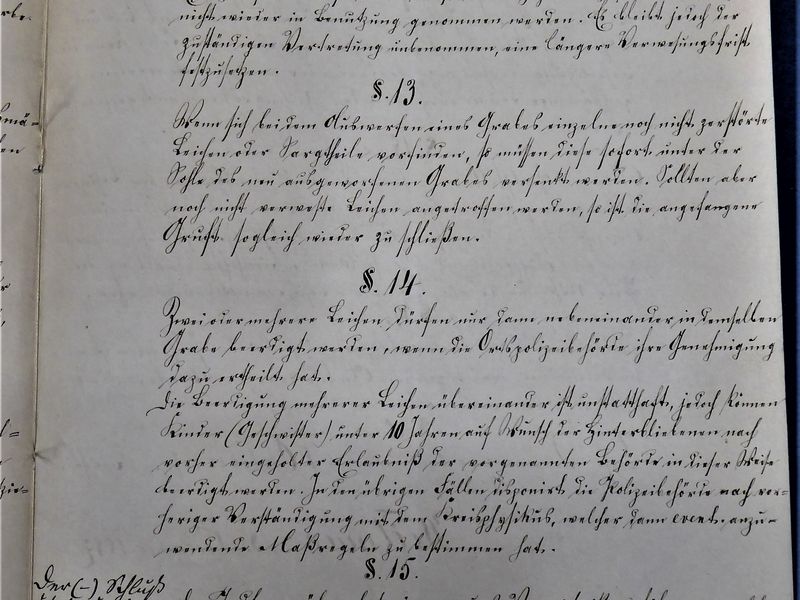 nicht wieder in Benutzung genommen werden. Es bleibt jedoch der
zuständigen Vertretung unbenommen, eine längere Verwesungsfrist
festzusetzen.
§. 13.
Wenn sich bei dem Auswerfen eines Grabes einzelne noch nicht zerstörte
Leichen oder Sargtheile vorfinden, so müssen diese sofort unter der
Sohle des neu ausgeworfenen Grabes versenkt werden. Sollten aber
noch nicht verweste Leichen angetroffen werden, so ist die angefangene
Gruft sogleich wieder zu schließen.
§. 14.
Zwei oder mehrere Leichen dürfen nur dann nebeneinander in demselben
Grabe beerdigt werden, wenn die Ortspolizeibehörde ihre Genehmigung
dazu ertheilt hat.
Die Beerdigung mehrerer Leichen übereinander ist unstatthaft, jedoch können
Kinder (Geschwister) unter 10 Jahren auf Wunsch der Hinterbliebenen nach
vorher eingeholter Erlaubniß der vorgenannten Behörde in dieser Weise
beerdigt werden. In den übrigen Fällen disponirt die Polizeibehörde nach vor-
heriger Verständigung mit dem Kreisphysikus, welcher dann event. anzu-
wendende Maßregeln zu bestimmen hat.
§. 15.
Der (-) Schluß